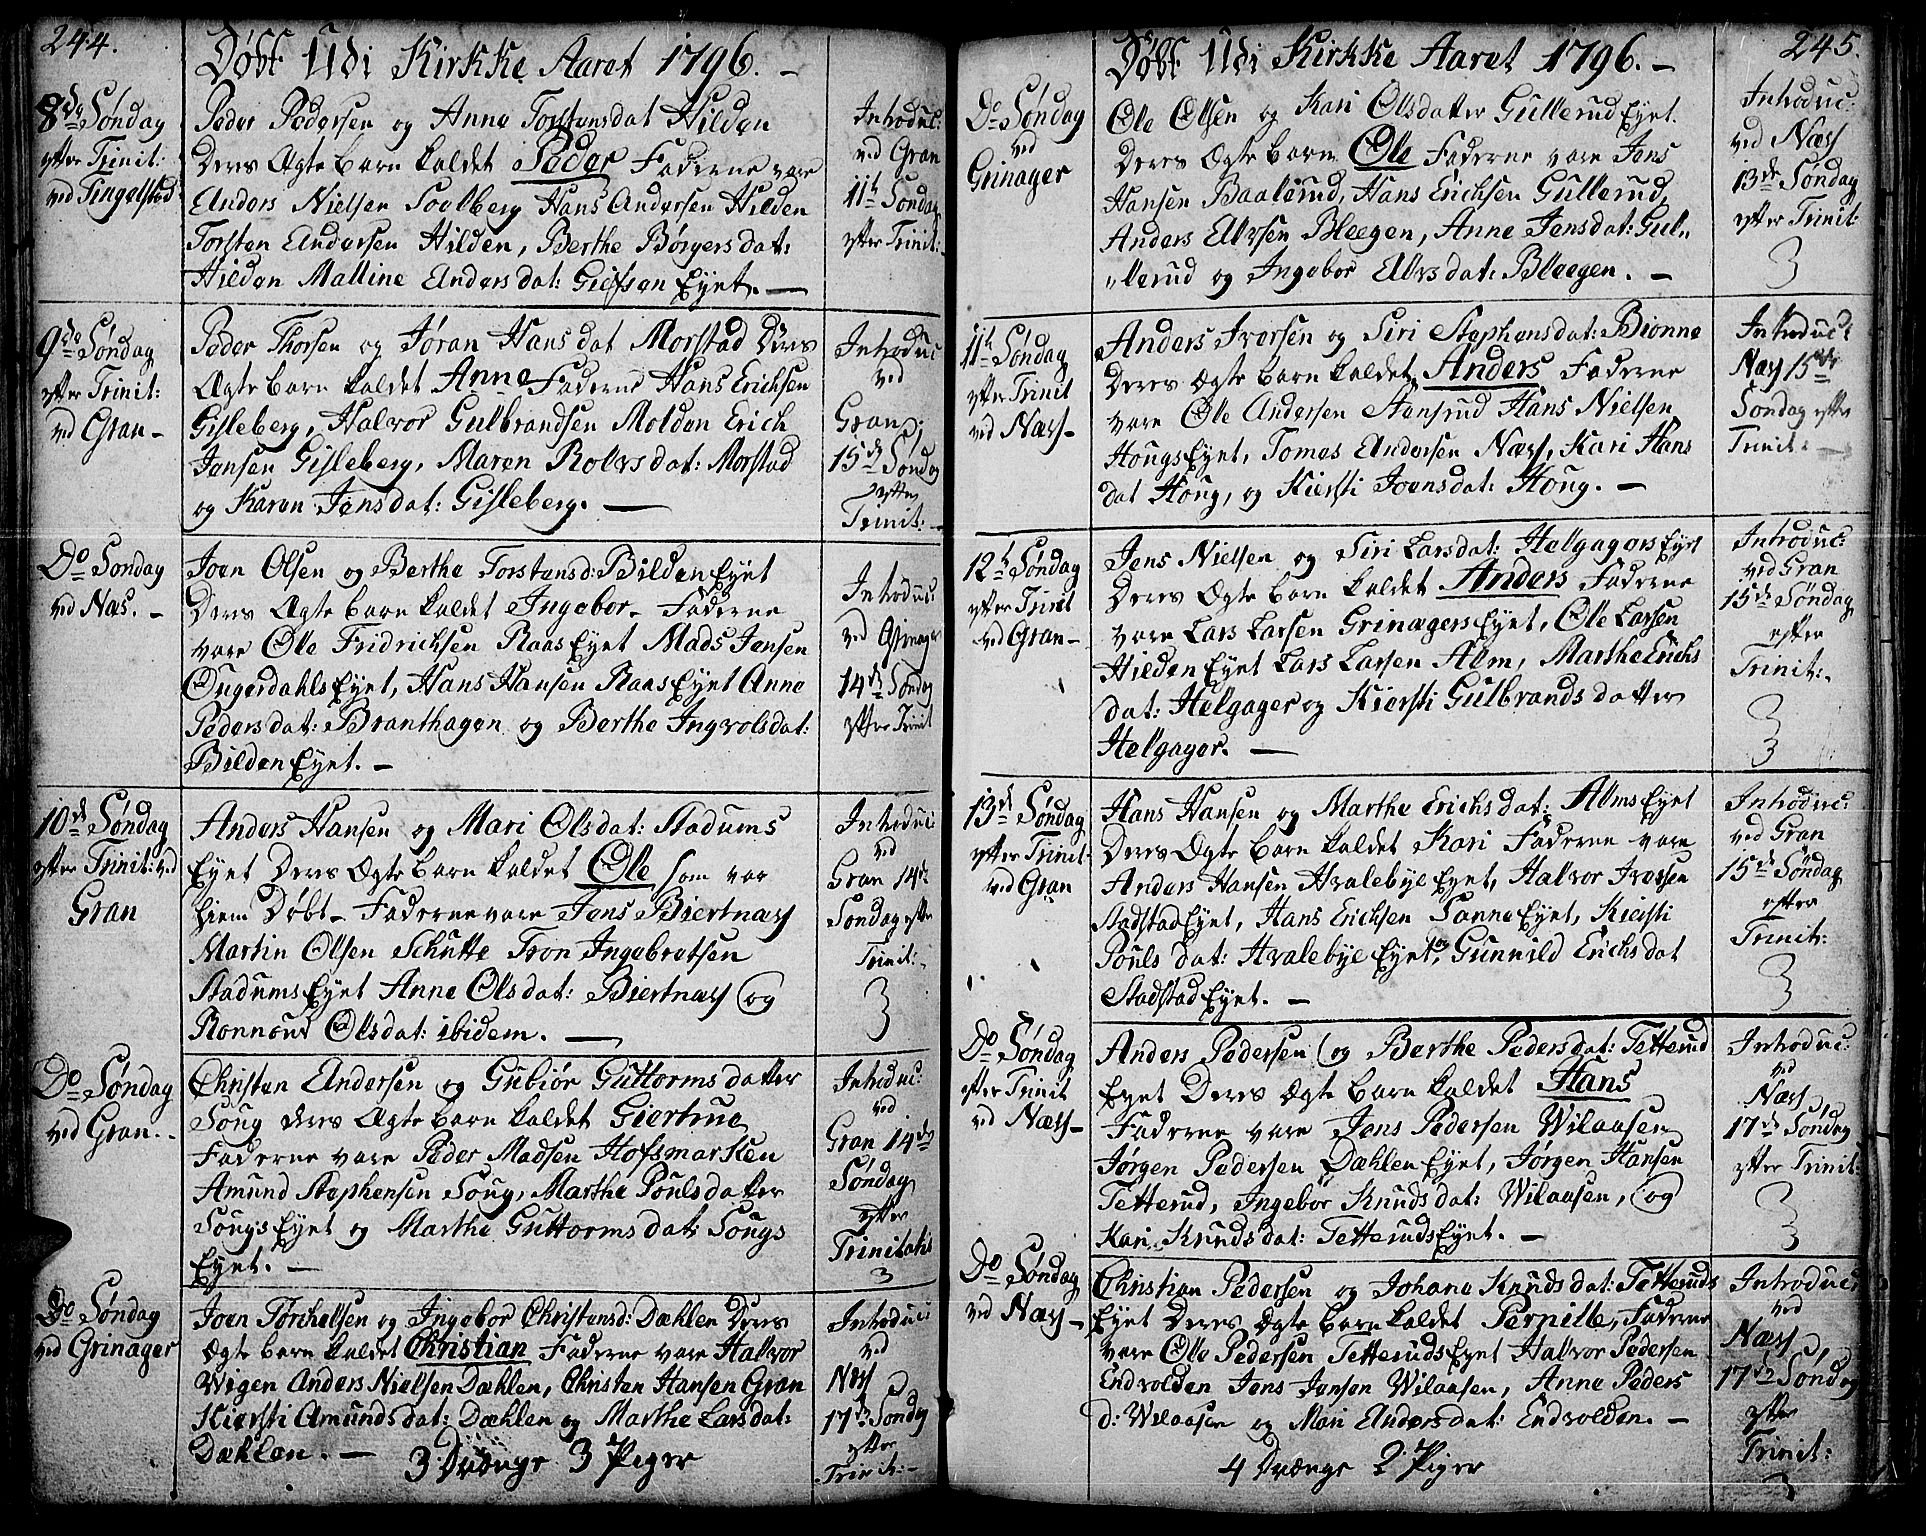 244.
Døbt Udi Kirkke Aaret 1796. -
8de Søndag
efter Trinit:
ved Tingelstad
Peder Pedersen og Anne Torstensdat Hilden
Deres Ægte barn kaldet Peder Faderne vare
Anders Nielsen Soelberg Hans Andersen Hilden
Torsten Andersen Hilden, Berthe Børgersdat:
Hilden Malline Andersdat: Eyet. -
Introduc:
ved Gran
11te Søndag
efter Trinit:
9de Søndag
efter Trinit:
ved Gran -
Peder Thorsen og Jøran Hansdat Morstad Deres
Ægte barn kaldet Anne Faderne Hans Erichsen
Gisleberg, Halvor Gulbrandsen Molden Erich
Jensen Gisleberg, Maren Rolvsdat: Morstad
og Karen Jensdat: Gisleberg. -
Introduc
ved
Gran
15de Søndag
efter
Trinit: -
Do Søndag
ved Næs. -
Joen Olsen og Berthe Torstensd: Bilden Eyet
Deres Ægte barn kaldet Ingebor - Faderne
vare Ole Fridrichsen Raas Eyet Mads Jensen
Ougerdahls Eyet, Hans Hansen Raas Eyet Anne
Pedersdat: Branthagen og Berthe Ingvolsdat:
Bilden Eyet. -
Introduc:
ved
14de Søndag
efter Trinit
10de Søndag
efter Trinit: ved
Gran
Anders Hansen og Mari Olsdat: Stadums
Eyet Deres Ægte barn kaldet Ole som var
hiem Døbt - Faderne vare Jens Biertnæs
Martin Olsen Schutte Tron Ingebretsen
Stadums Eyet Anne Olsdat: Biertnæs og
Ronnour Olsdat: ibidem. -
Introduc:
ved
Gran 14de
Søndag efter
Trinit:
3
Do Søndag
ved Gran. -
Christen Andersen og Gubiør Guttormsdatter
Soug deres Ægte barn kaldet Giertrue
Faderne vare Peder Madsen Hofsmarken
Amund Stephensen Soug, Marthe Poulsdatter
Sougs Eyet og Marthe Guttormsdat: Sougs
Eyet. -
Introduc:
ved
Gran 14de
Søndag
efter
Trinitatis
3
Do Søndag
ved Grinager
Joen Torchelsen og Ingebor Christensd: Dæhlen Deres
Ægte barn kaldet Christian Faderne vare Halvor
Wigen Anders Nielsen Dæhlen, Christen Hansen Gran
Kiersti Amundsdat: Dæhlen og Marthe Larsdat:
Dæhlen. -
3 Drænge 3 Piger
Introduc:
ved
Næs
17de Søndag
efter
Trinit: -
245.
Døbt Udi Kirkke Aaret 1796. -
Do Søndag
ved
Grinager
Ole Olsen og Kari Olsdatter Gullerud Eyet.
Deres Ægte barn Ole Faderne vare Jens
Hansen Baalerud, Hans Erichsen Gullerud,
Anders Alvsen Bleegen, Anne Jensdat: Gul-
lerud og Ingebor Alvsdat: Bleegen. -
Introduc:
ved Næs
13de Søndag
efter Trinit:
3
11te Søndag
efter Trinit
ved Næs -
Anders Iversen og Siri Stephensdat: Bionne
Deres Ægte barn kaldet Anders Faderne
vare Ole Andersen Hans Nielsen
Hougs Eyet, Tomes Andersen Næs, Kari Hans
dat Houg, og Kiersti Joensdat: Houg. -
Introduc:
Næs 15de
Søndag efter
Trinit: -
12te Søndag
efter Trinit
ved Gran -
Jens Nielsen og Siri Larsdat: Helgagers Eyet
Deres Ægte barn kaldet Anders Faderne
vare Lars Larsen Grinagers Eyet, Ole Larsen
Hilden Eyet Lars Larsen Alm, Marthe Erichs
dat: Helgager og Kiersti Gulbrandsdatter
Helgager. -
Introduc:
ved Gran
15de Søndag
efter
Trinit:
3
13de Søndag
efter Trinit.
ved Gran
Hans Hansen og Marthe Erichsdat: Alms Eyet
Deres Ægte barn kaldet Kari Faderne vare
Anders Hansen Hvalebye Eyet, Halvor Iversen
Stadstad Eyet, Hans Erichsen Sanne Eyet, Kiersti
Pouls dat: Hvalebye Eyet, og Gunnild Erichsdat
Stadstad Eyet. -
Introduc:
ved Gran
15de Søndag
efter
Trinit:
3
Do Søndag
efter Trinit
ved Næs -
Anders Pedersen og Berthe Pedersdat: Tetterud
Eyet Deres Ægte barn kaldet Hans
Faderne vare Jens Pedersen Wilaasen
Jørgen Pedersen Dæhlen Eyet, Jørgen Hansen
Tetterud, Ingebor Knudsdat: Wilaasen, og
Kari Knudsdat: Tetteruds Eyet. -
Introduc:
ved
Næs
17de Søndag
efter Trinit:
3
Do Søndag
ved Næs -
Christian Pedersen og Johane Knudsdat: Tetteruds
Eyet Deres Ægte barn kaldet Pernille, Faderne
vare Ole Pedersen Tetteruds Eyet Halvor Pedersen
Endvolden Jens Jensen Wilaasen, Anne Peders
d: Wilaasen og Mari Andersdat: Endvolden. -
4 Drænge 2 Piger
Introduc:
ved
Næs
17de Søndag
efter
Trinit:
3